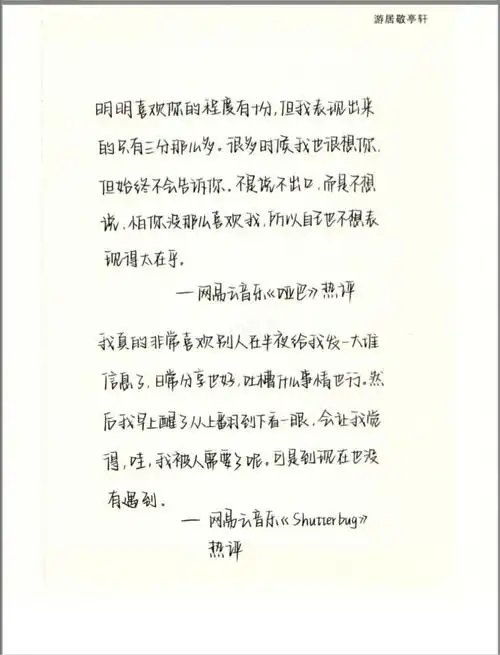 游居敬亭轩
明明喜欢你的程度有十分,但我表现出来
的只有三分那么多。很多时候我也很想你,
但始终不会告诉你。不是说不出口,而是不想
说,怕你没那么喜欢我,所以自己也不想表
现得太在乎。
——网易云音乐《哑巴》热评
我真的非常喜欢别人在半夜给我发一大堆
信息了,日常分享也好,吐槽什么事情也行。然
后我早上醒了从上翻到下看一眼,会让我觉
得,哇,我被人需要了呢。可是到现在也没
有遇到。
——网易云音乐《Shutterbug》
热评